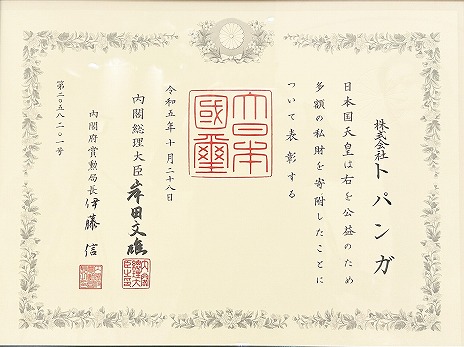 株式会社トパンガ
日本国天皇は右を公益のため
多額の私財を寄附したことに
ついて表彰する
大日本
國璽
令和五年十月二十八日
内閣総理大臣 岸田文雄
内閣総理大臣之印
内閣府賞勲局長 伊藤 信
第二〇五八二〇一号